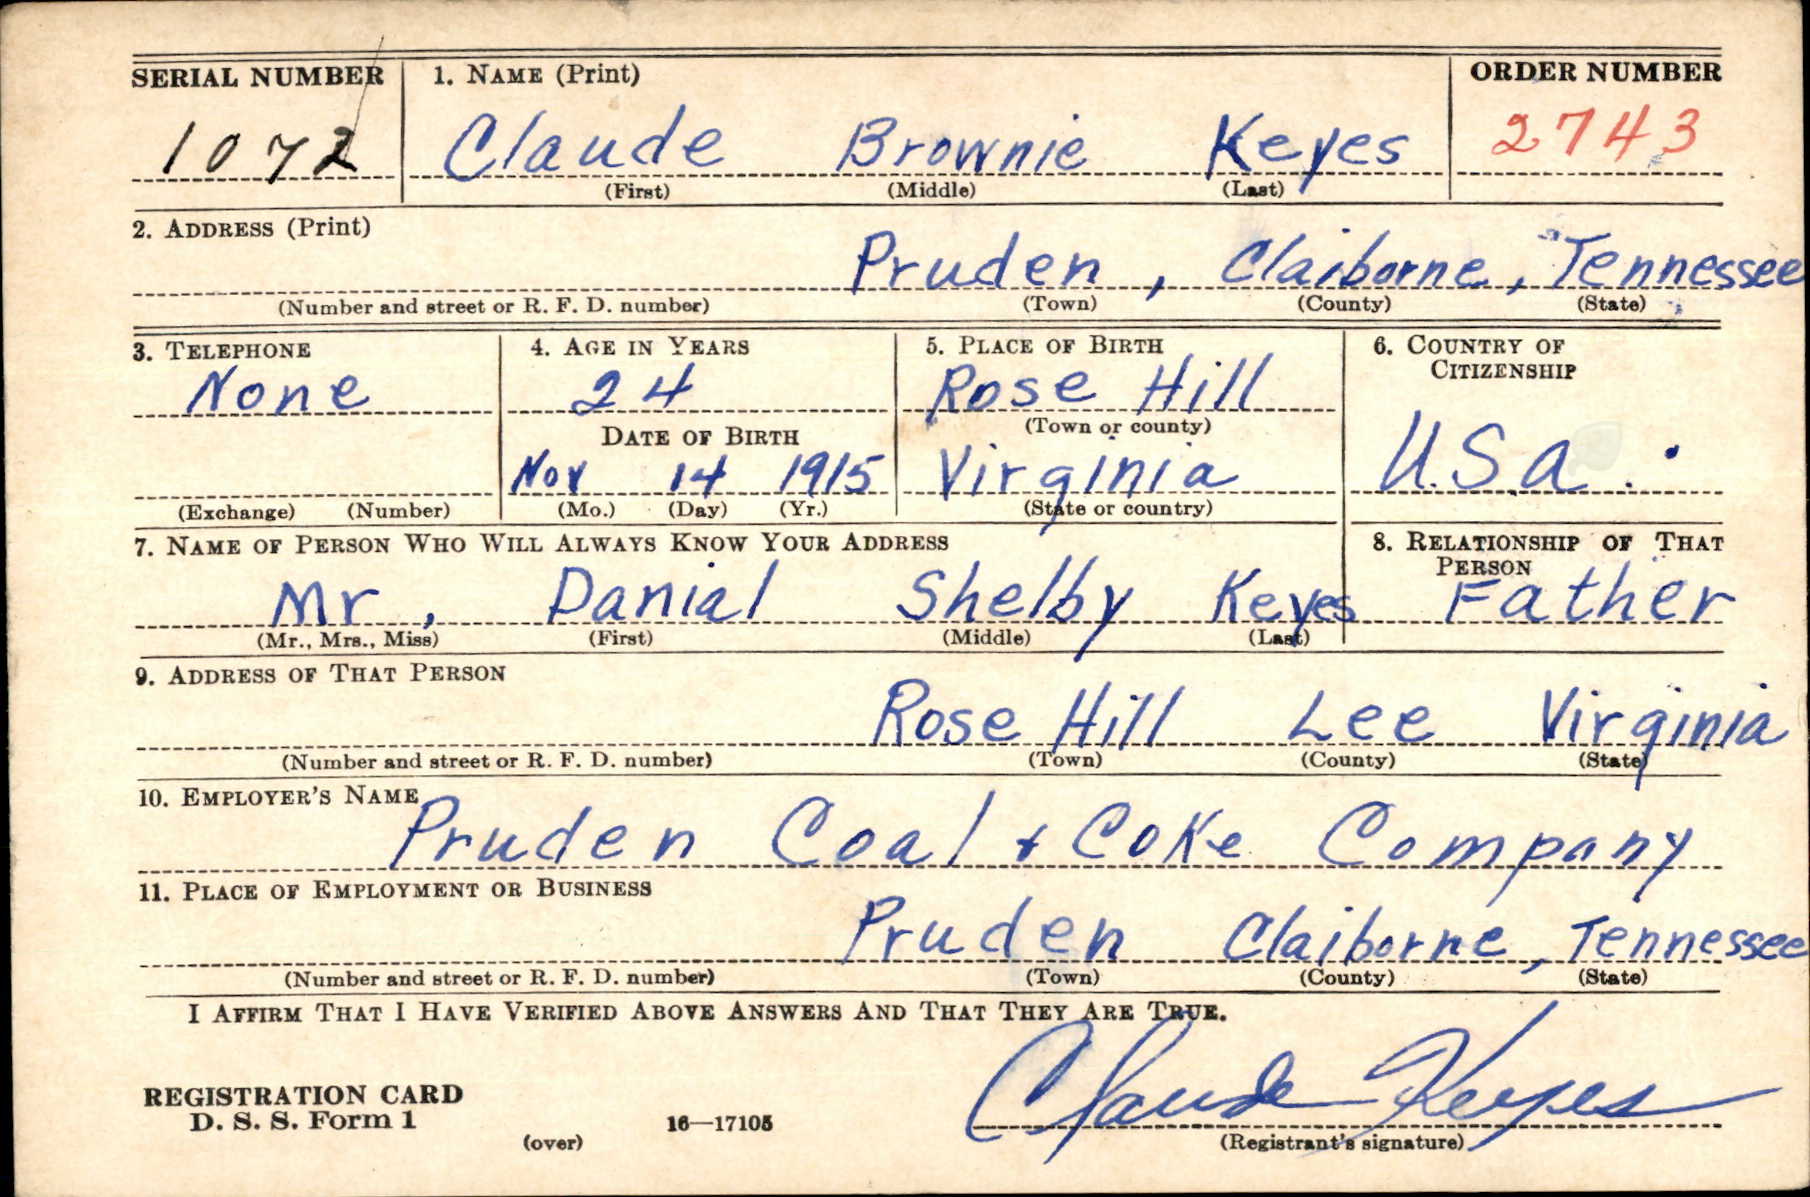 SERIAL NUMBER 1. NAME (Print) ORDER NUMBER
1072 Claude Brownie Keyes 2743
(First) (Middle) (Last)
2. ADDRESS (Print)
Pruden, Claiborne, Tennessee
(Number and street or R. F. D. number) (Town) (County) (State)
3. TELEPHONE 4. AGE IN YEARS 5. PLACE OF BIRTH 6. COUNTRY OF
CITIZENSHIP
None 24 Rose Hill
(Town or county)
DATE OF BIRTH
Nov 14 1915 Virginia U.S.A.
(Exchange) (Number) (Mo.) (Day) (Yr.) (State or country)
7. NAME OF PERSON WHO WILL ALWAYS KNOW YOUR ADDRESS 8. RELATIONSHIP OF THAT
PERSON
Mr, Danial Shelby Keyes Father
(Mr., Mrs., Miss) (First) (Middle) (Last)
9. ADDRESS OF THAT PERSON
Rose Hill Lee Virginia
(Number and street or R. F. D. number) (Town) (County) (State)
10. EMPLOYER'S NAME
Pruden Coal & Coke Company
11. PLACE OF EMPLOYMENT OR BUSINESS
Pruden Claiborne, Tennessee
(Number and street or R. F. D. number) (Town) (County) (State)
I AFFIRM THAT I HAVE VERIFIED ABOVE ANSWERS AND THAT THEY ARE TRUE.
Claude Keyes
REGISTRATION CARD
D. S. S. Form 1 16—17105
(over) (Registrant's signature)